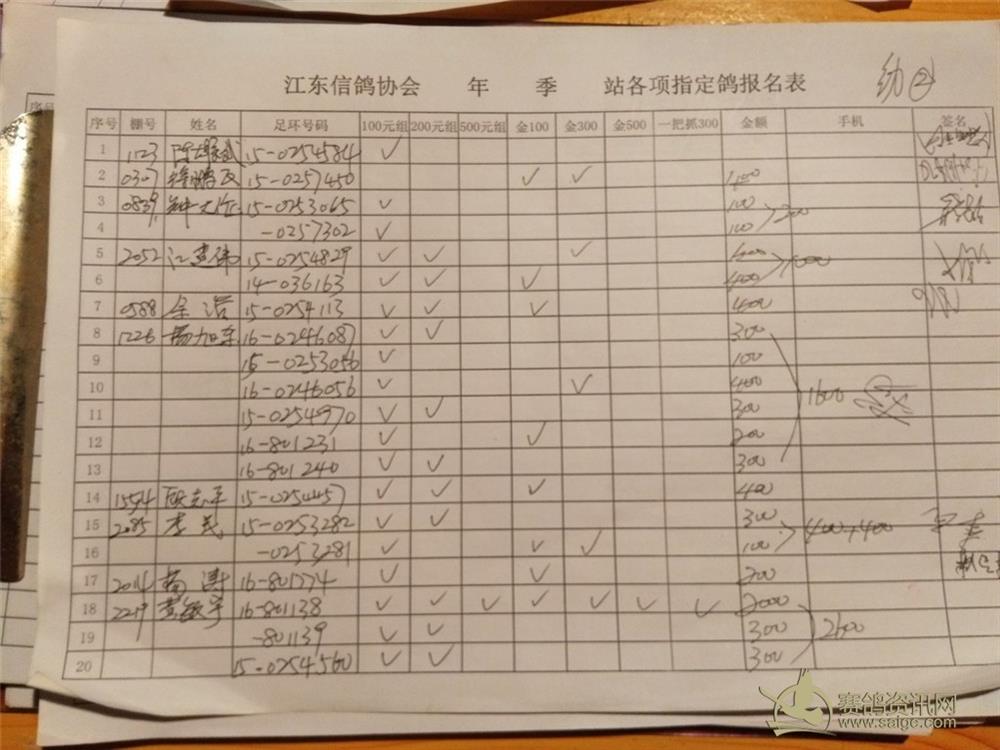 江东信鸽协会 年 季 站各项指定鸽报名表 幼②
序号
序号 棚号 姓名 足环号码 100元组 200元组 500元组 金100 金300 金500 一把抓300 金额 手机 签名
1 1123 15-0254584 ✓
2 0307 15-0257450 ✓ ✓ 400
3 0839 15-0253065 ✓ 100
4 -0257302 ✓ 100 200
5 2052 江建伟 15-0254829 ✓ ✓ ✓
6 14-036163 ✓ ✓ ✓ 400
7 0588 余浩 15-0254113 ✓ ✓ ✓ 400
8 1226 杨旭东 16-0246087 ✓ ✓ 300
9 15-0253056 ✓ 100
10 16-0246056 ✓ ✓ 400 1600
11 15-0254970 ✓ ✓ 300
12 16-801231 ✓ ✓ 200
13 16-801240 ✓ ✓ 300
14 1594 15-0254457 ✓ ✓ ✓ 400
15 2085 李民 15-0253282 ✓ ✓ 300 400+400
16 -0253281 ✓ ✓ ✓ 100
17 2014 杨涛 16-801774 ✓ ✓ 200
18 2219 黄敏宇 16-801138 ✓ ✓ ✓ ✓ ✓ ✓ ✓ 2000
19 -801139 ✓ ✓ 300 2600
20 15-0254560 ✓ ✓ 300
赛鸽资讯网
www.saigc.com